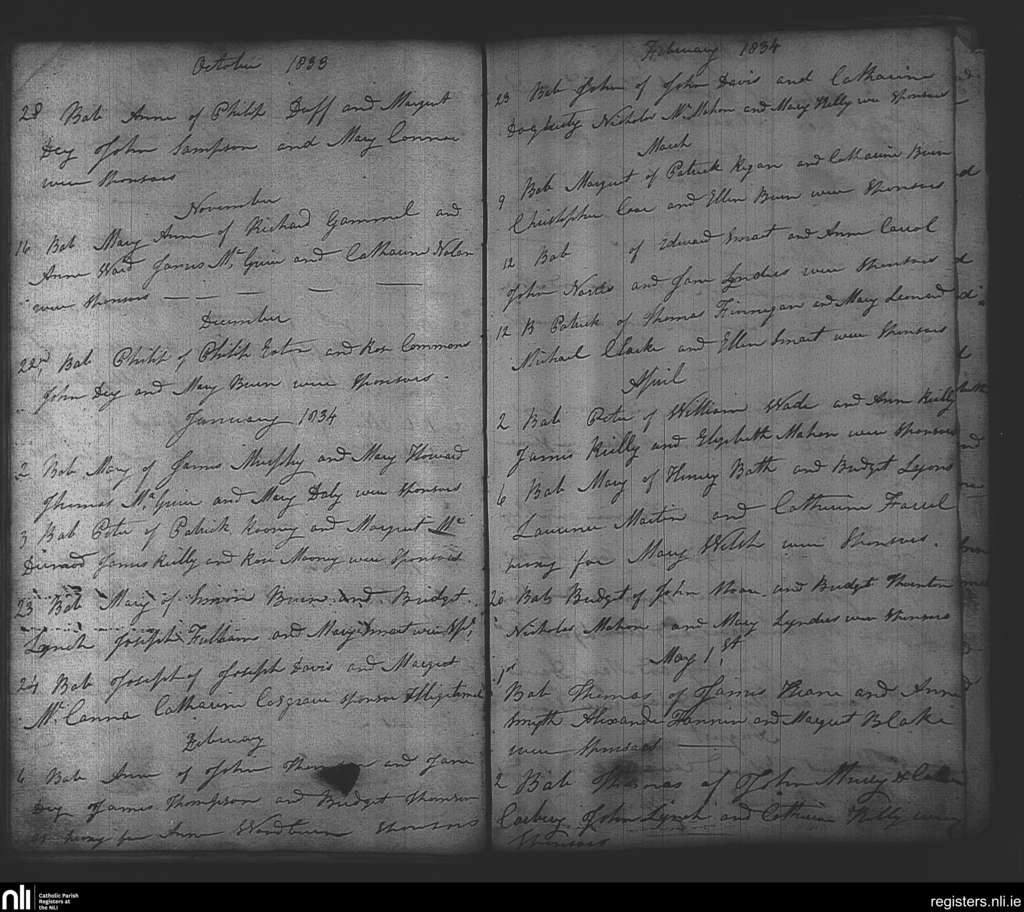 October 1833
28 Bab Anne of Philip Duff and Margret
Dey John Sampson and Mary Connor
were Sponsors
November
16 Bab Mary Anne of Richard Gammel and
Anne Ward James Mc Guire and Catharine Nolan
were Sponsors
December
22nd Bab Philip of Philip and Rose Commons
John Dey and Mary Burn were Sponsors
January 1834
2 Bab Mary of James Murphy and Mary Howard
Thomas Mc Guire and Mary Daly were Sponsors
3 Bab Peter of Patrick Rooney and Margret Mc
James Reilly and Rose Mooney were Sponsors
23 Bab Mary of Burn and Bridget
Lynch Joseph Fulham and Mary Smart were Sprs
24 Bab Joseph of Joseph Davis and Margret
Mc Canna Catharine Cosgrave sponsor Illegitimate
February
6 Bab Anne of John and Jane
Dey James Thompson and Bridget
as proxy for Anne Sponsors
February 1834
23 Bab John of John Davis and Catharine
Dogherty Nicholas Mc Mahon and Mary Kelly were Sponsors
March
9 Bab Margret of Patrick Ryan and Catharine Burn
Christopher and Ellen Burn were Sponsors
12 Bab of Edward Smart and Anne Carrol
John and Jane Lyndres were Sponsors
12 B Patrick of Thomas Finnegan and Mary Leonard
Michael Clarke and Ellen Smart were Sponsors
April
2 Bab Peter of William Wade and Ann Reilly
James Reilly and Elizabeth Mahon were Sponsors
6 Bab Mary of Henry Bath and Bridget Lyons
Laurence Martin and Catherine Farrel
proxy for Mary Welsh were Sponsors.
20 Bab Bridget of John Moore and Bridget Thornton
Nicholas Mahon and Mary Lyndres were Sponsors
May 1st
1st
Bab Thomas of James Keane and Anne
Smyth Alexander Fannin and Margret Blake
were Sponsors
2 Bab Thomas of John &
John Lynch and Catherine Kelly were
Sponsors
nli
Catholic Parish
Registers at
the NLI
registers.nli.ie